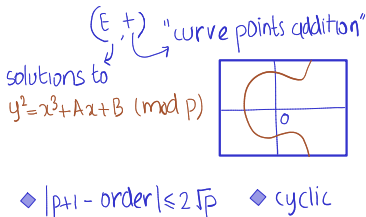 (E,+) "curve points addition"
solutions to
y²=x³+Ax+B (mod p)
0
|p+1-order|≤2√p
cyclic